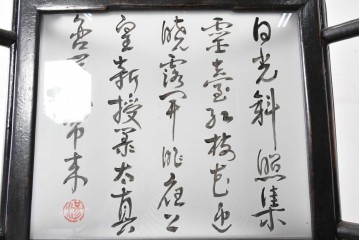 日光斜照集
靈臺红樹花迎
曉露開昨夜上
皇新授箓太真
含 帘来